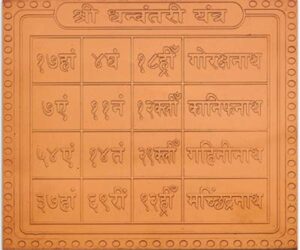 श्री धन्वंतरी यंत्र
१७हां ४घं १८ह्रीँ गोरक्षनाथ
७एं ११नं १२क्लीं कानिफनाथ
५४एं १४तं १९क्लीं गहिनीनाथ
३७हां ६९रीं १२ह्रीँ मच्छिंद्रनाथ